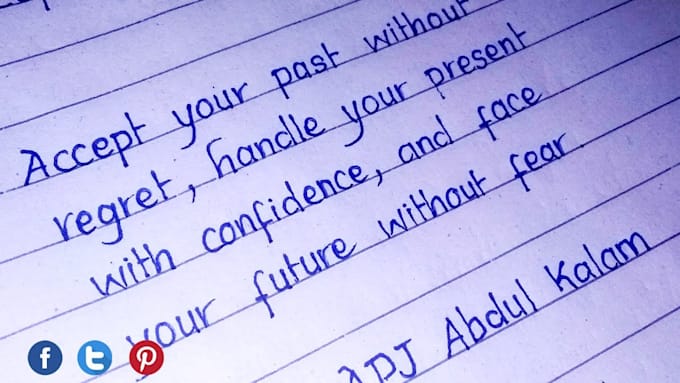 Accept your past without
regret, handle your present
with confidence, and face
your future without fear.
APJ Abdul Kalam